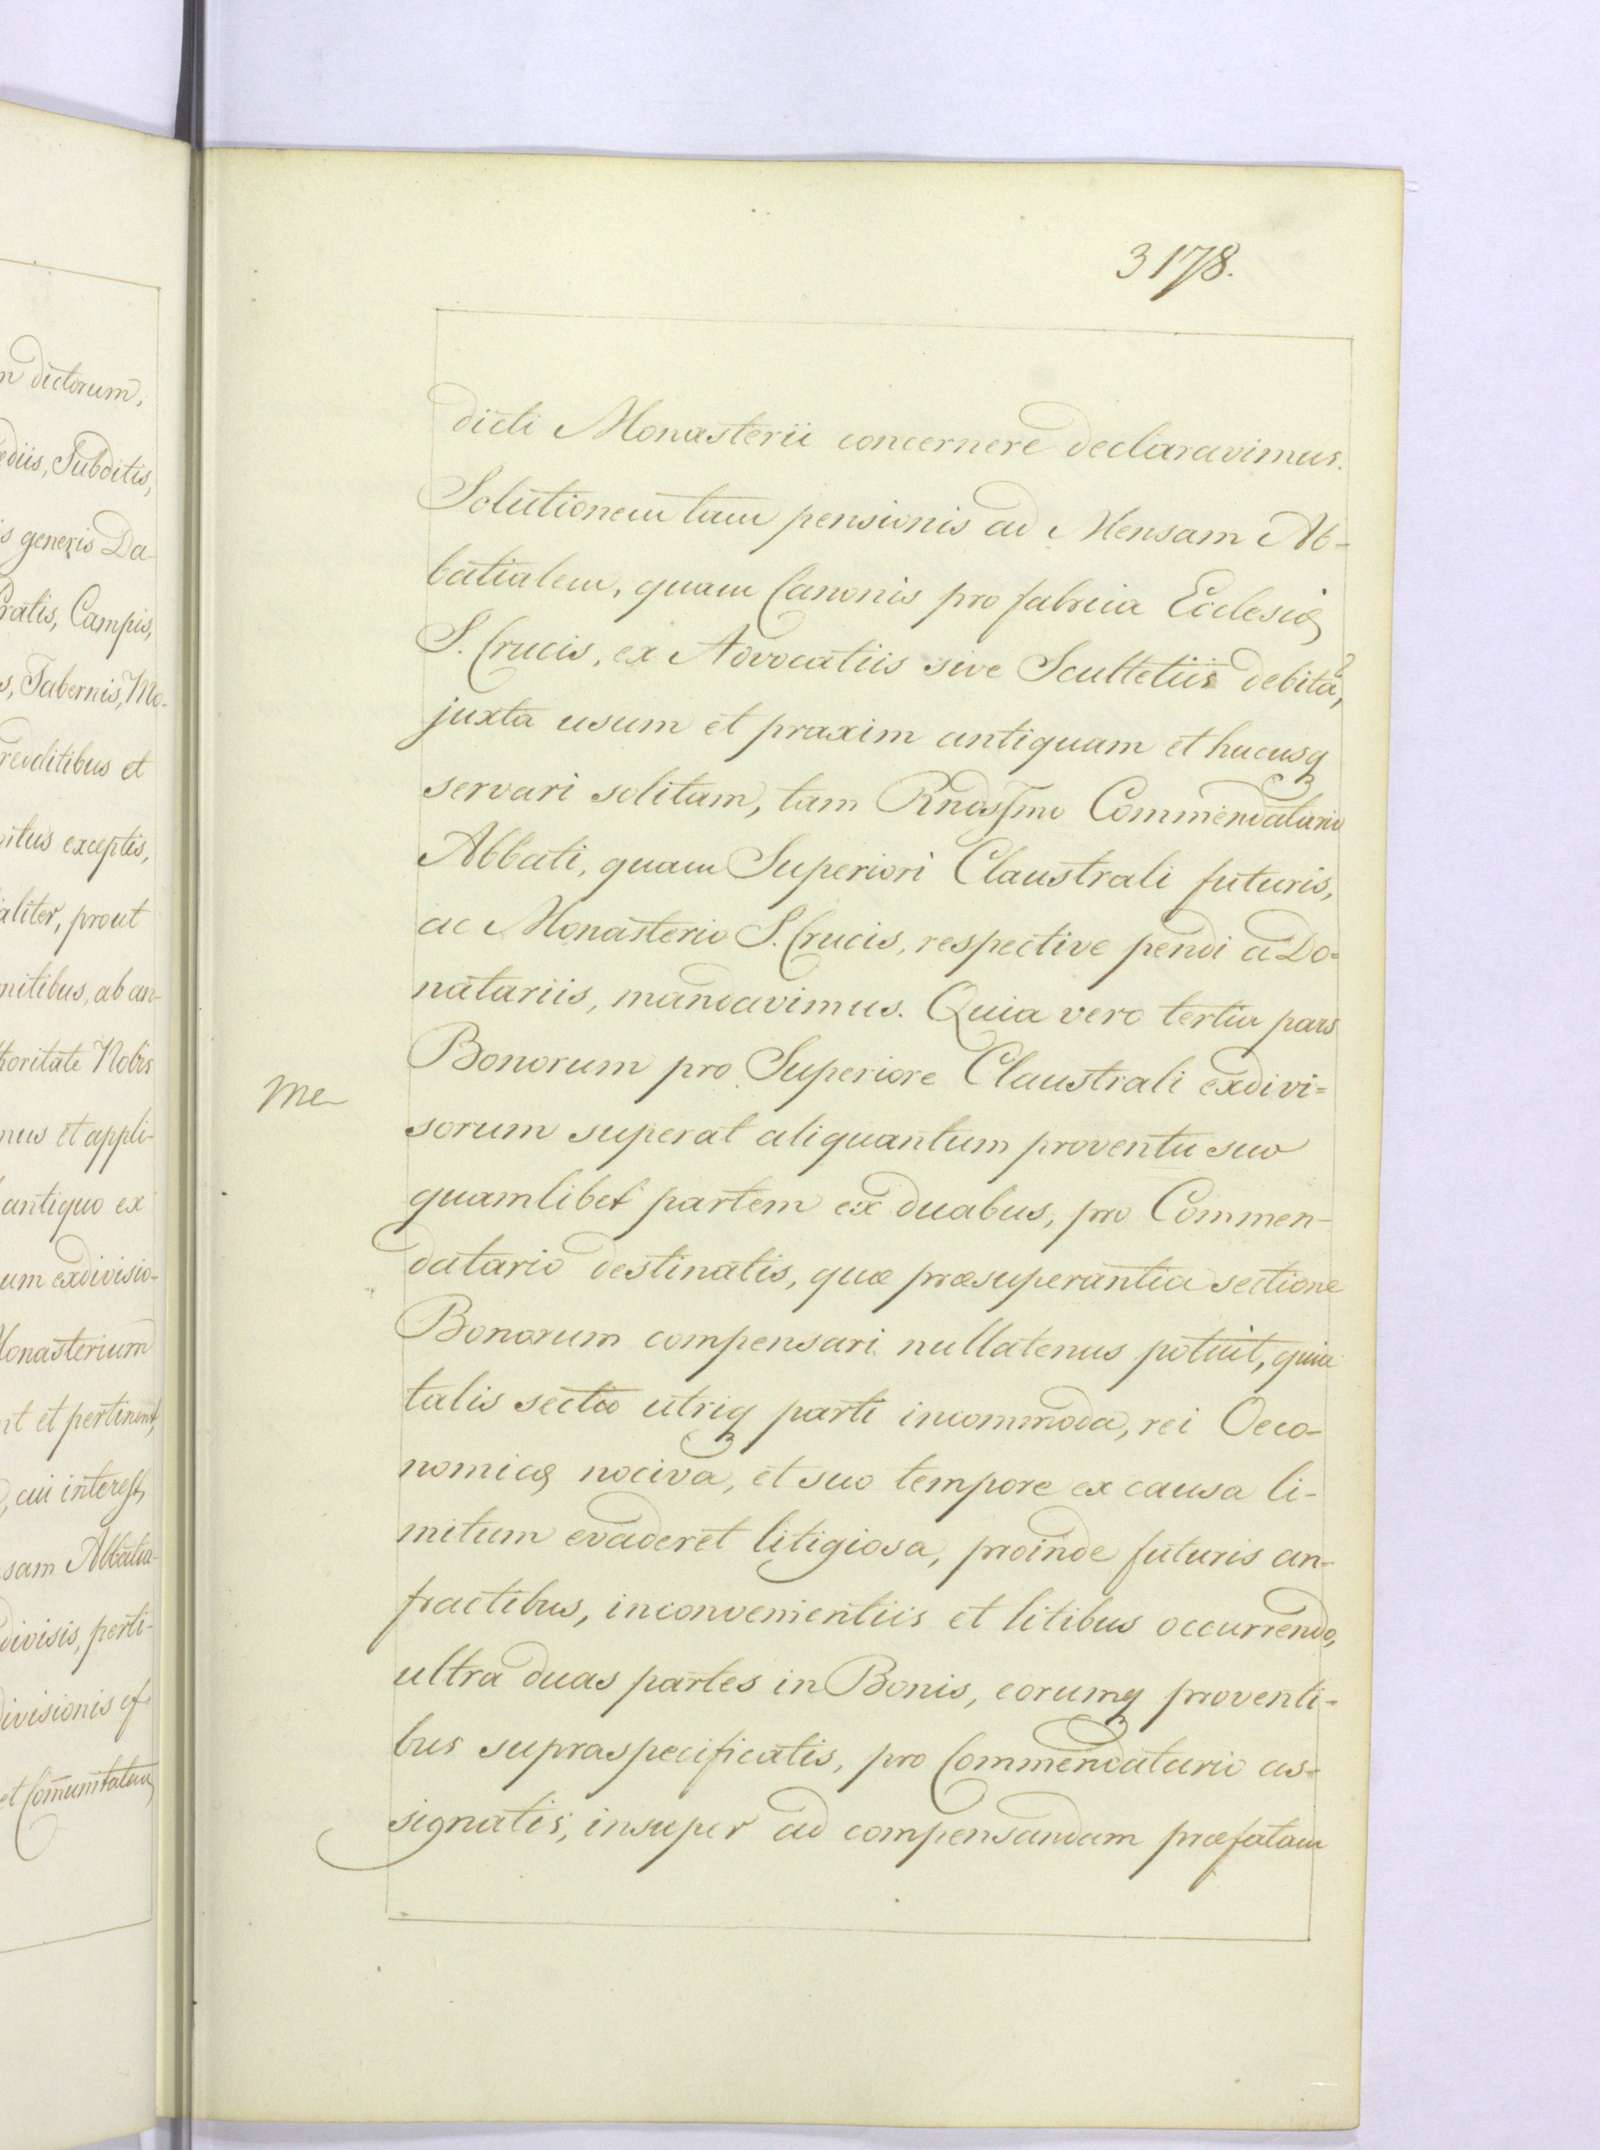 n dictorum,
ediis, Subditis,
s generis Da-
Pratis, Campis,
s, Tabernis, Mo-
redditibus et
nitus exceptis,
aliter, prout
mitibus, ab an-
thoritate Nobis
mus et appli-
antiquo ex
um exdivisio-
Monasterium
nt et pertinent,
cui interest,
sam Abbatia-
divisis, perti-
divisionis ef-
et Com̄unitatem
3178.
dicti Monasterii concernere declaravimus.
Solutionem tam pensionis ad Mensam Ab-
batialem, quam Canonis pro fabrica Ecclesię
S. Crucis, ex Advocatiis sive Scultetiis debita,
juxta usum et praxim antiquam et hucusq
servari solitam, tam Rndssmo Commendatario
Abbati, quam Superiori Claustrali futuris,
ac Monasterio S. Crucis, respective pendi a Do-
natariis, mandavimus. Quia vero tertia pars
Bonorum pro Superiore Claustrali exdivi-
me
sorum superat aliquantum proventu suo
quamlibet partem ex duabus, pro Commen-
datario destinatis, quæ præsuperantia sectione
Bonorum compensari nullatenus potuit, quia
talis sectio utriq parti incommoda, rei Oeco-
nomicę nociva, et suo tempore ex causa li-
mitum evaderet litigiosa, proinde futuris an-
fractibus, inconvenientiis et litibus occurrendo,
ultra duas partes in Bonis, eorumq proventi-
bus supraspecificatis, pro Commendatario as-
signatis, insuper ad compensandam præfatam